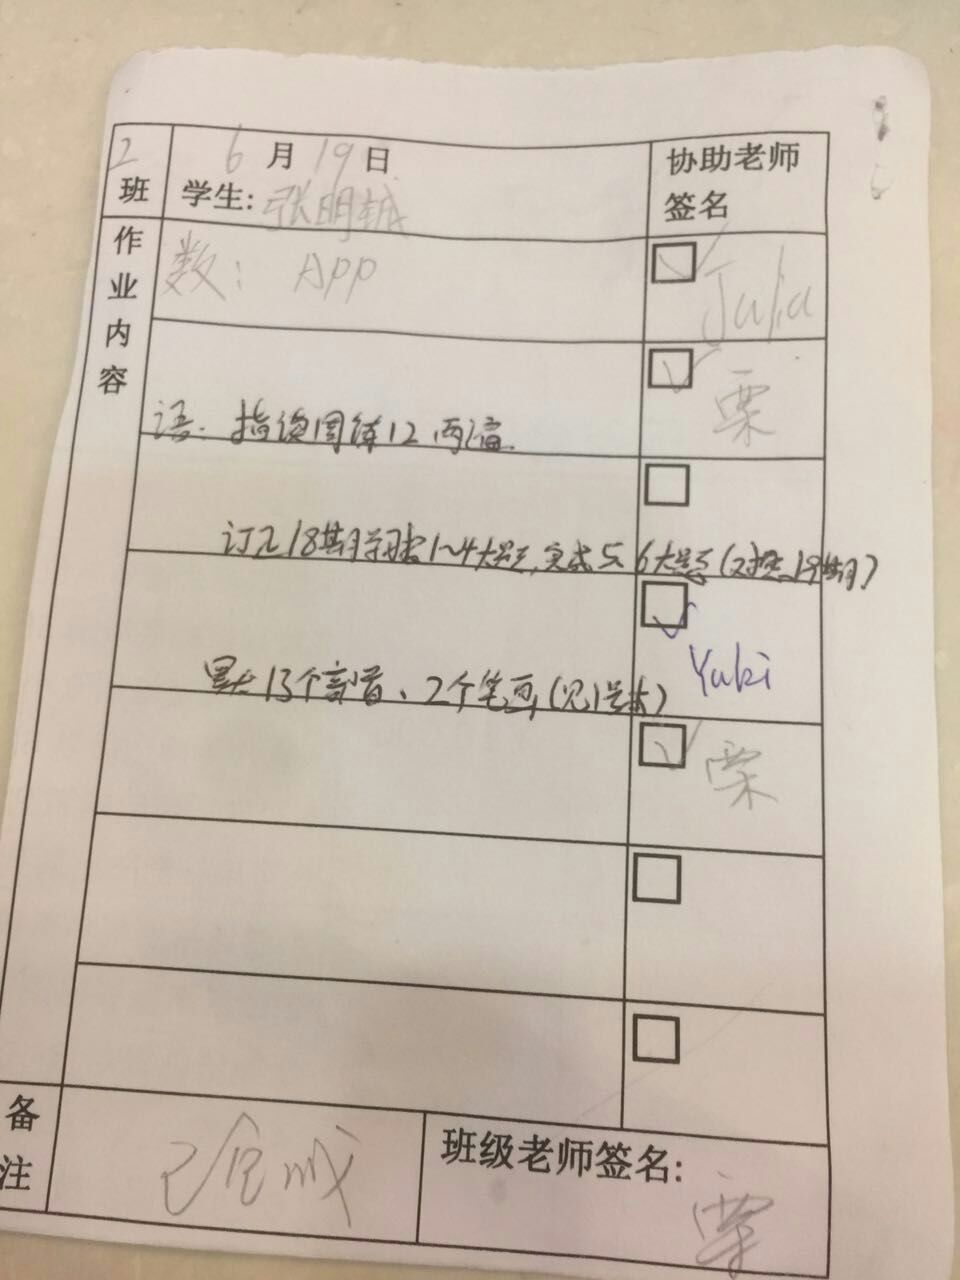 2班
6月19日
学生:张明铖
协助老师
签名
作业内容
数: App
Julia
栗
语: 指读周练12两遍.
订正18期学习报1~4大题,完成5、6大题(对照19期)
Yuki
13个部首、2个笔画(见1号本)
栗
备注
已完成
班级老师签名:
栗